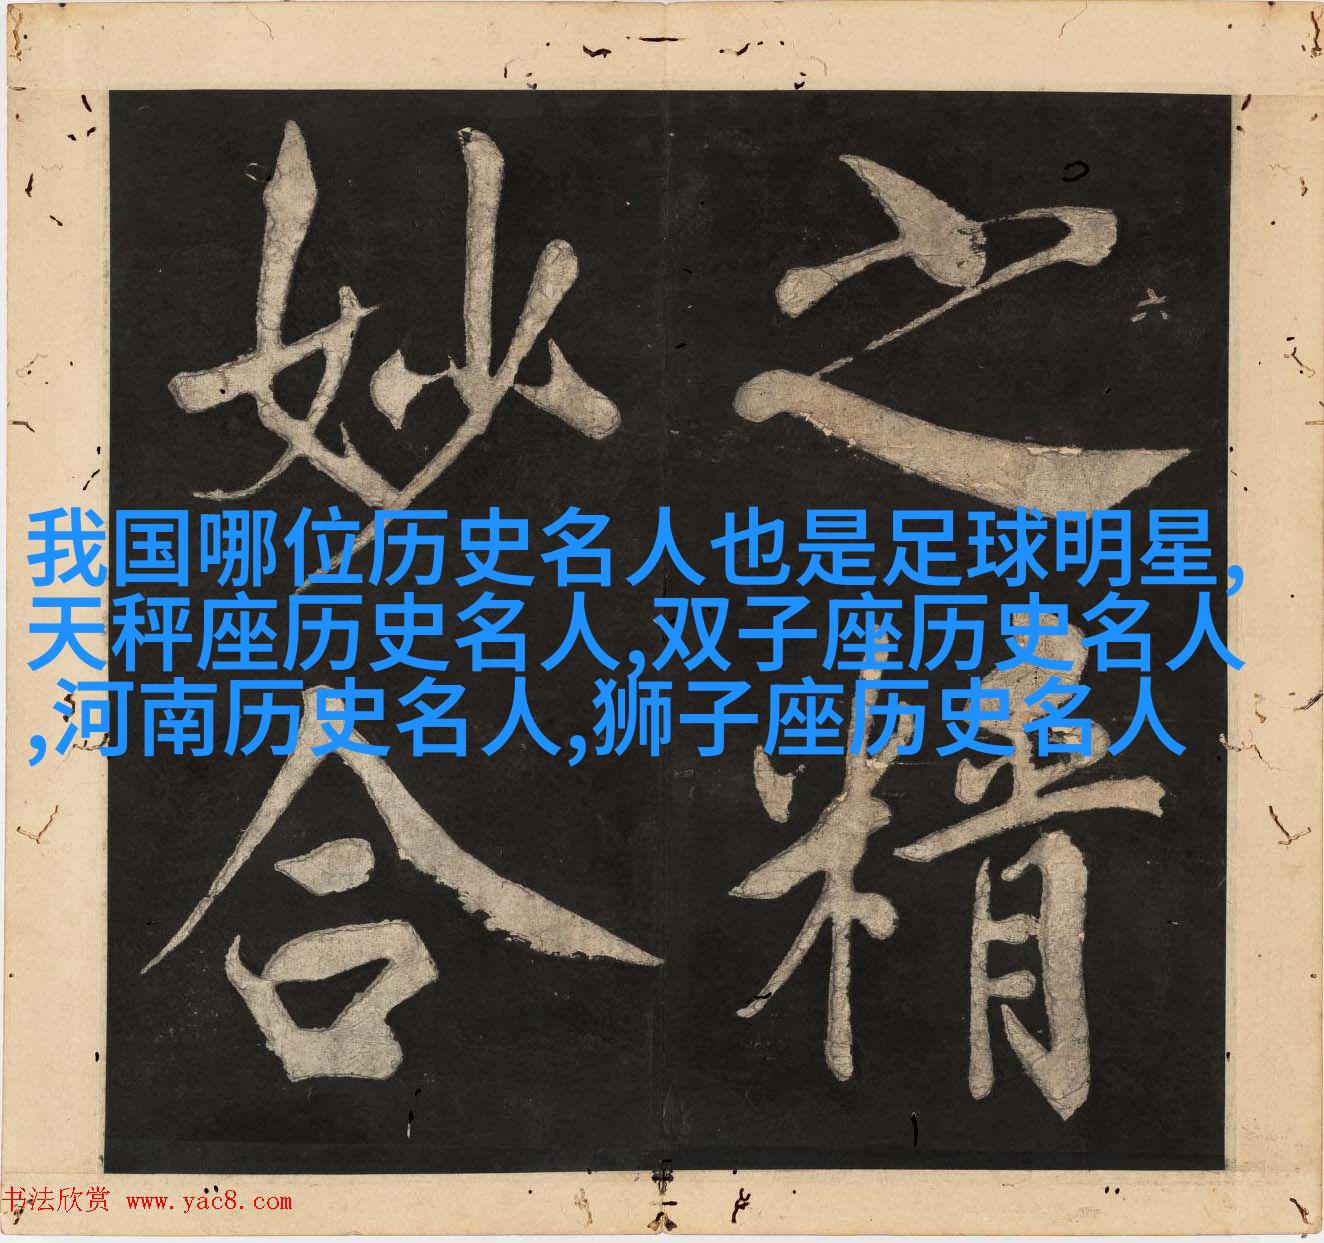 之精
妙合
六
我国哪位历史名人也是足球明星,
天秤座历史名人,双子座历史名人
,河南历史名人,狮子座历史名人
书法欣赏 www.yac8.com